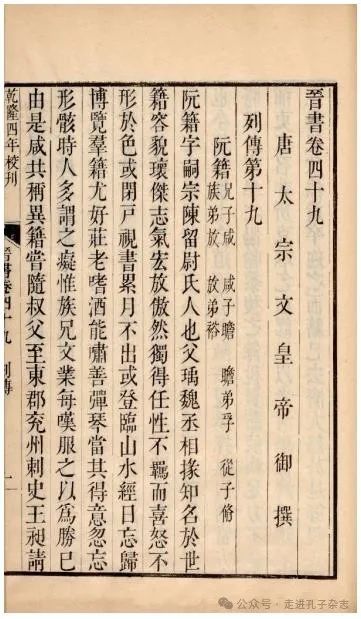 晉書卷四十九
唐太宗文皇帝御撰
列傳第十九
阮籍 兄子咸 咸子瞻 瞻弟孚 從子脩
族弟放 放弟裕
阮籍字嗣宗陳留尉氏人也父瑀魏丞相掾知名於世
籍容貌瓌傑志氣宏放傲然獨得任性不羈而喜怒不
形於色或閉戶視書累月不出或登臨山水經日忘歸
博覽羣籍尤好莊老嗜酒能嘯善彈琴當其得意忽忘
形骸時人多謂之癡惟族兄文業每嘆服之以爲勝己
由是咸共稱異籍嘗隨叔父至東郡兗州刺史王昶請
乾隆四年校刊 晉書卷四十九 列傳 一
公众号·走进孔子杂志